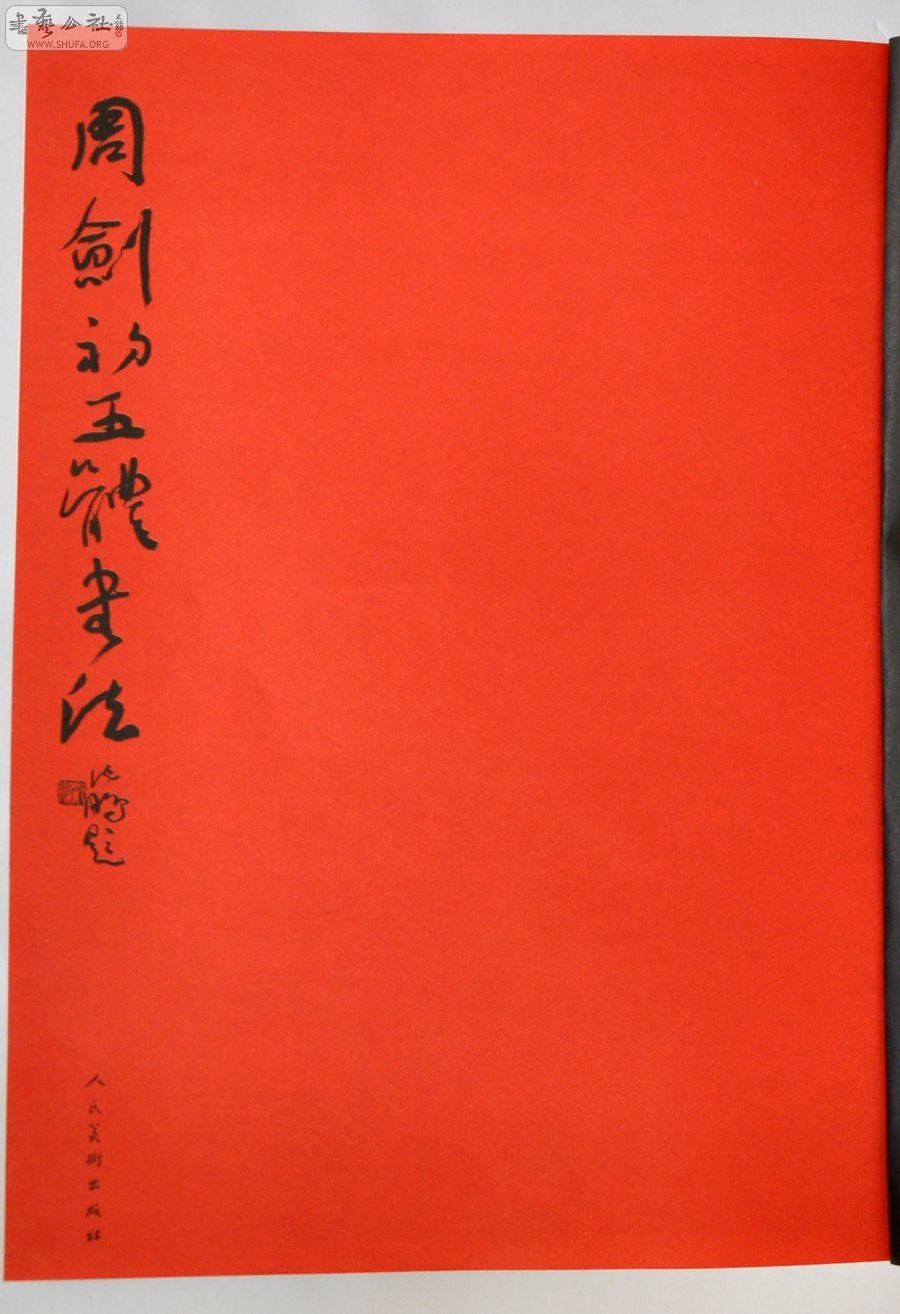 書藝公社
WWW.SHUFA.ORG
周劍初五體書法
沈鵬題
人民美術出版社